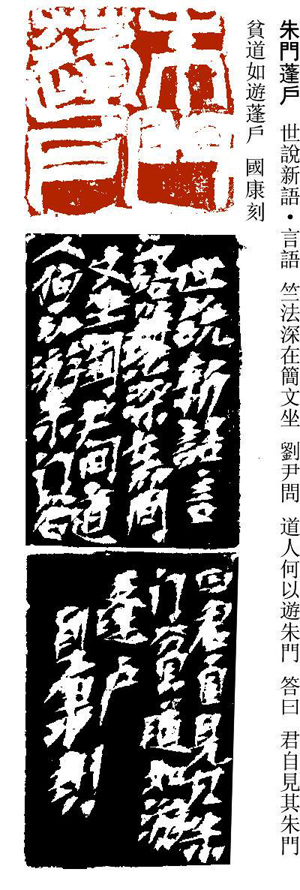 朱門蓬戶 世說新語・言語 竺法深在簡文坐 劉尹問 道人何以遊朱門 答曰 君自見其朱門
貧道如遊蓬戶 國康刻
朱門
蓬戶
世說新語言
語竺法深在簡
文坐劉尹問道
人何以游朱门答
曰君自見其朱
门貧道如游
蓬戶